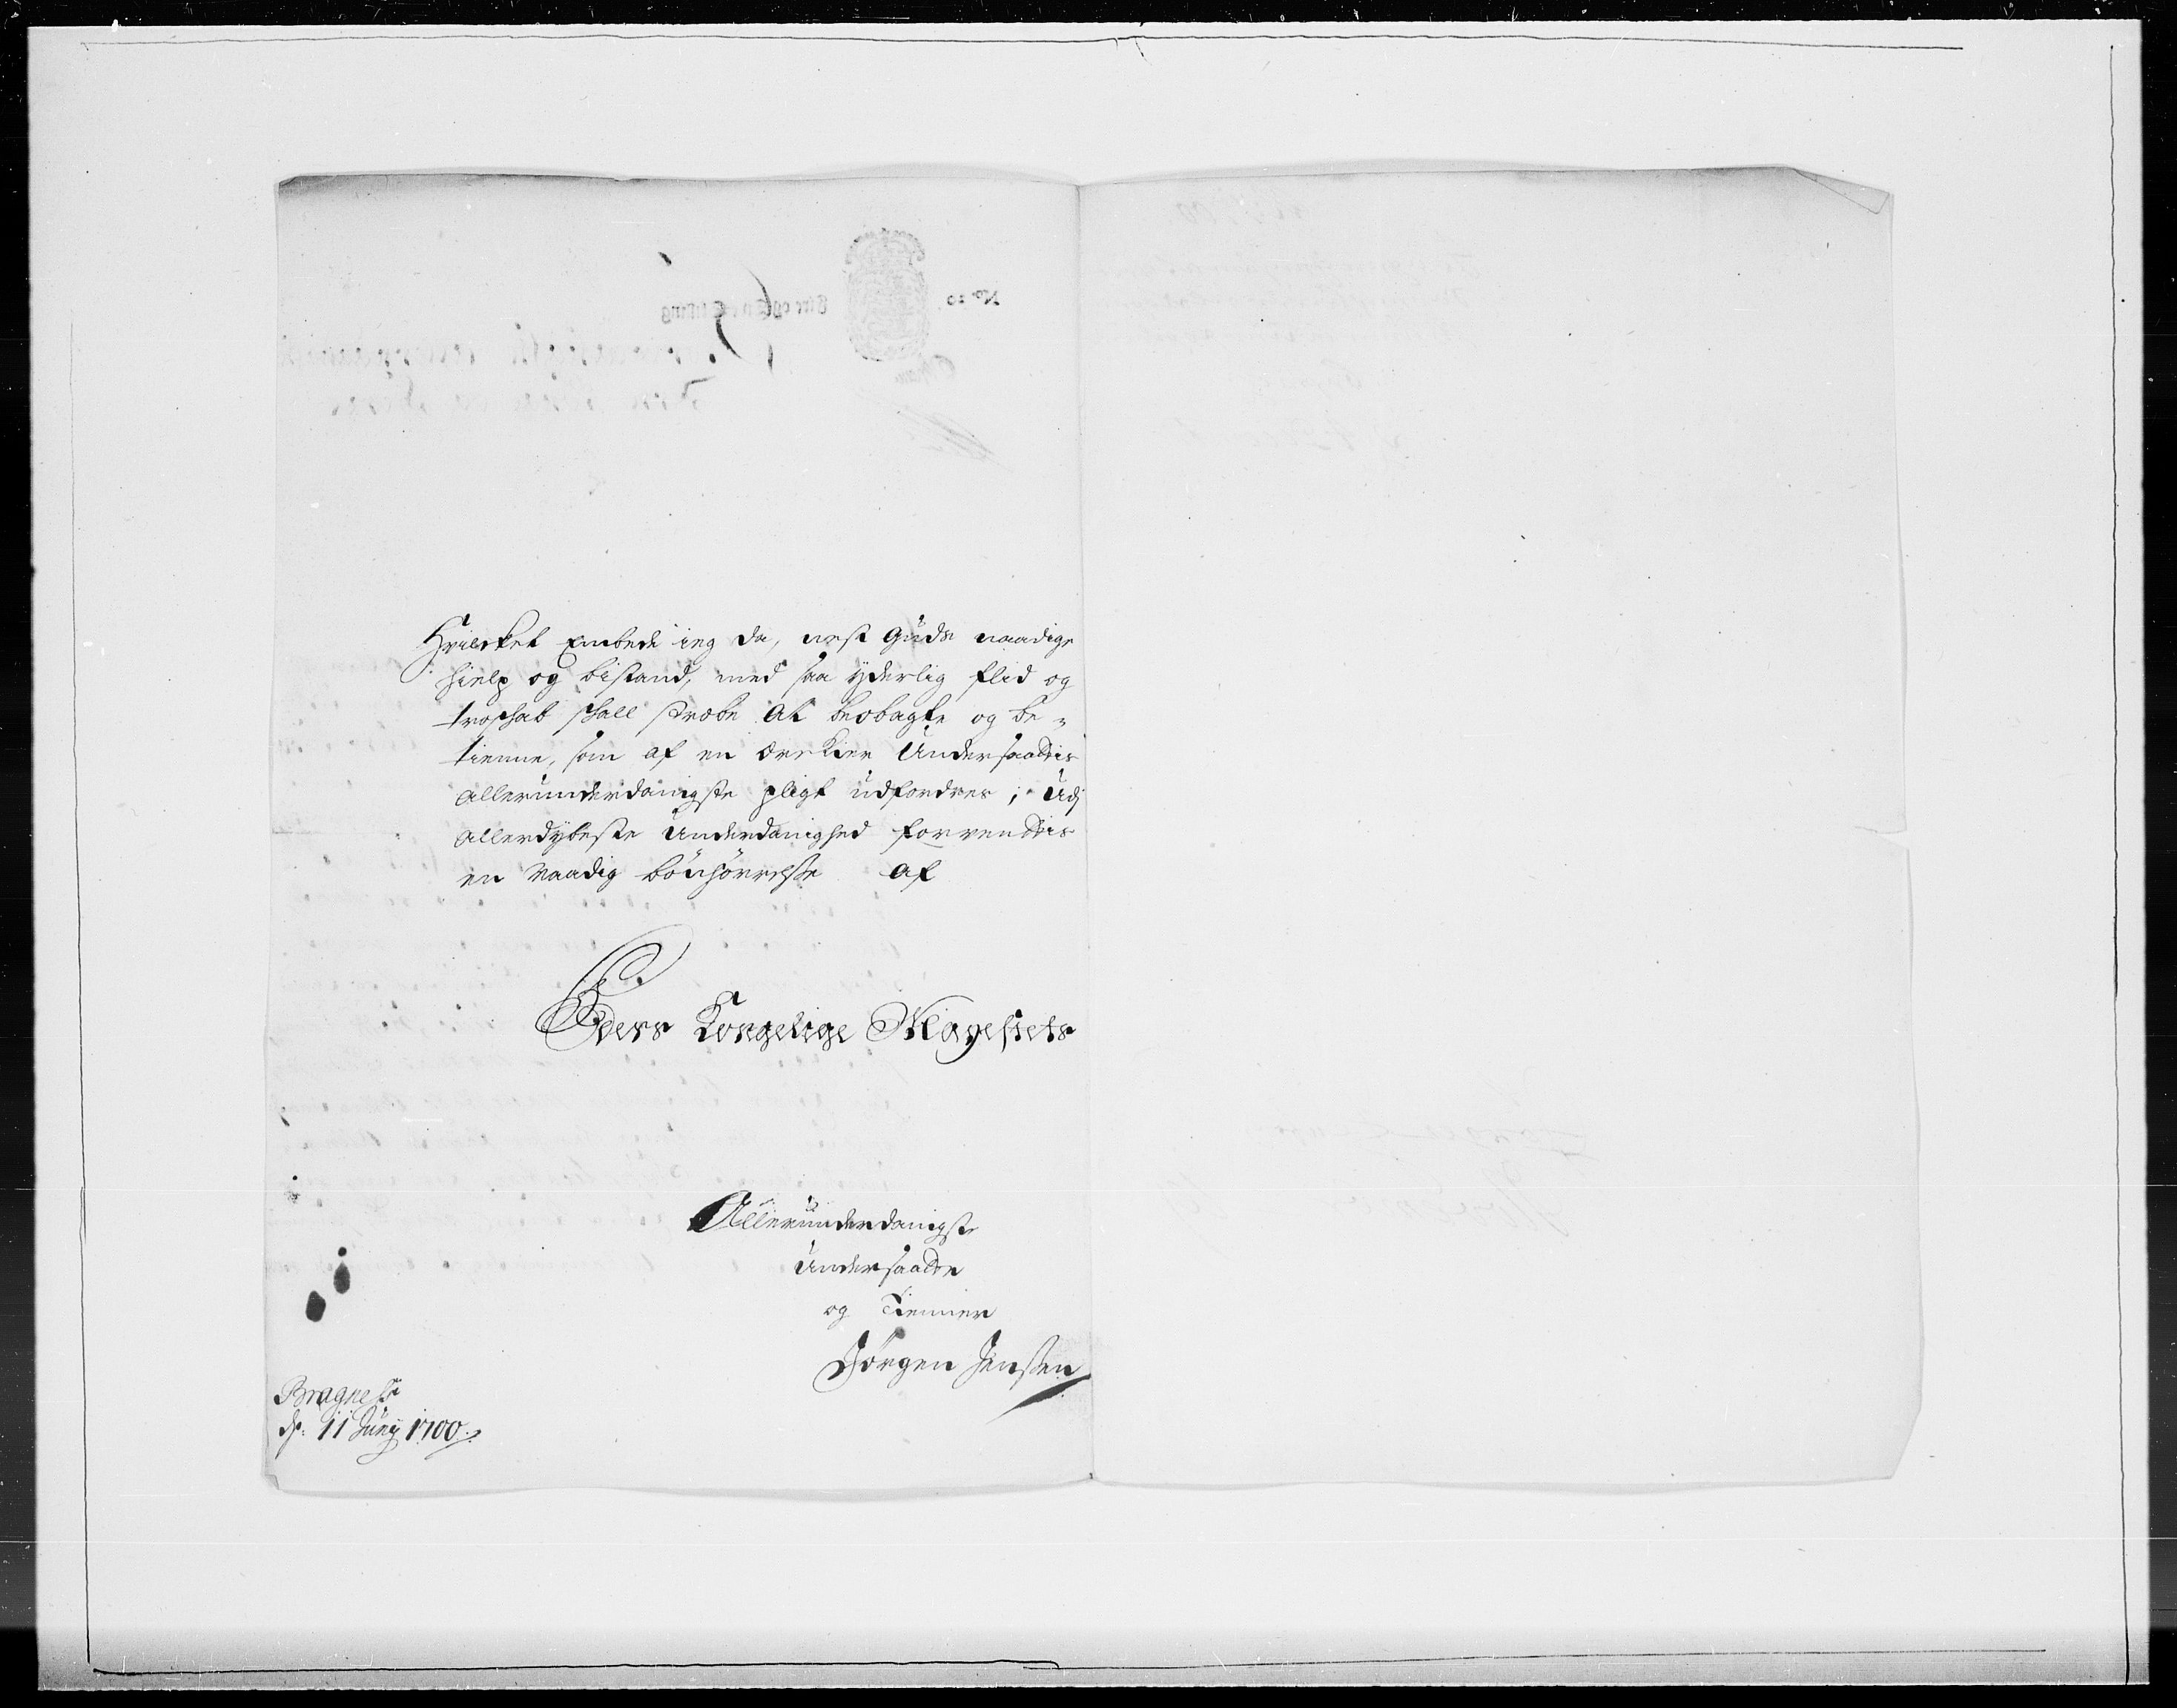 Hvilcket Embede ieg da, nest Guds naadige
hielp og bistand, med saa yderlig flid og
troschab schall stræbe at beobagte og be-
tienne, som af en ærekier Undersaattis
allerunderdanigste pligt udfordres; Udj
allerdybeste Underdanighed forventtis
en Naadig bönhörrelse af
Eders Kongelige Mayestets
Allerunderdanigste
Undersaatte
og Tienner
Jörgen Jensen
Bragness
d. 11 Junij 1700.